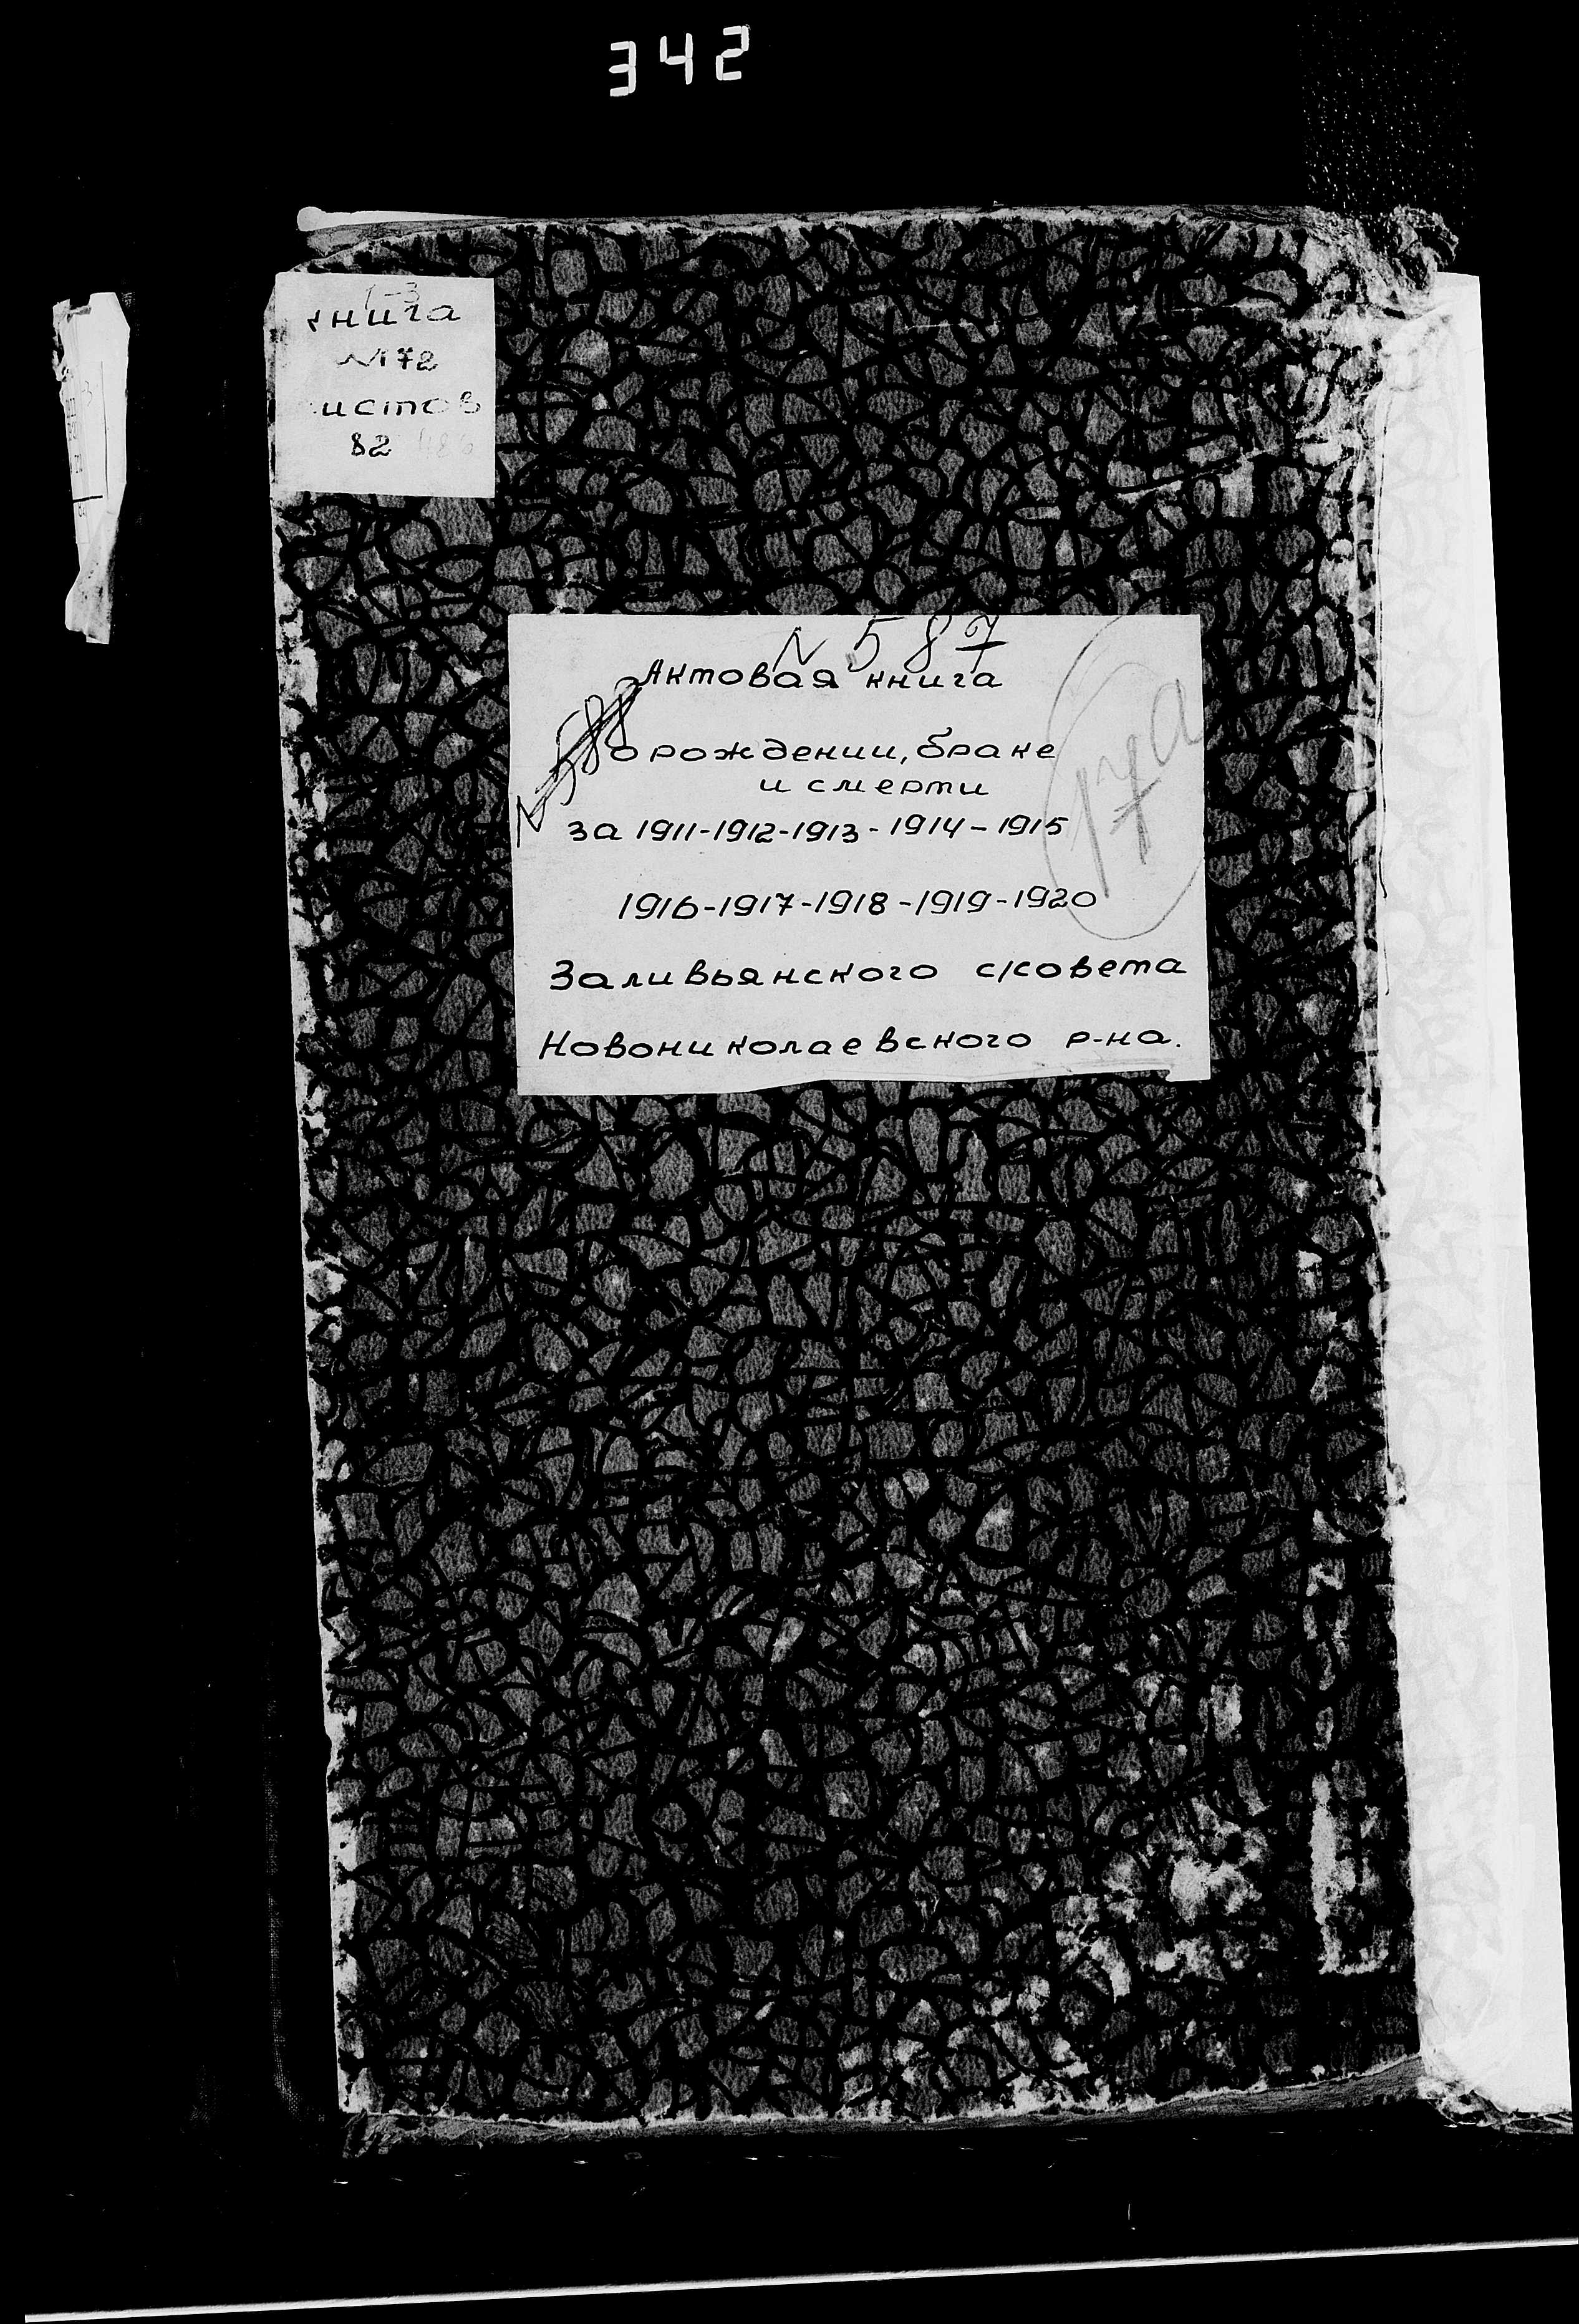 342
1-3
книга
№72
листов
82 486
N 587
Актовая книга
N 588
о рождении, браке
и смерти
17а
за 1911-1912-1913-1914-1915
1916-1917-1918-1919-1920
Заливьянского с/совета
Новониколаевского р-на.